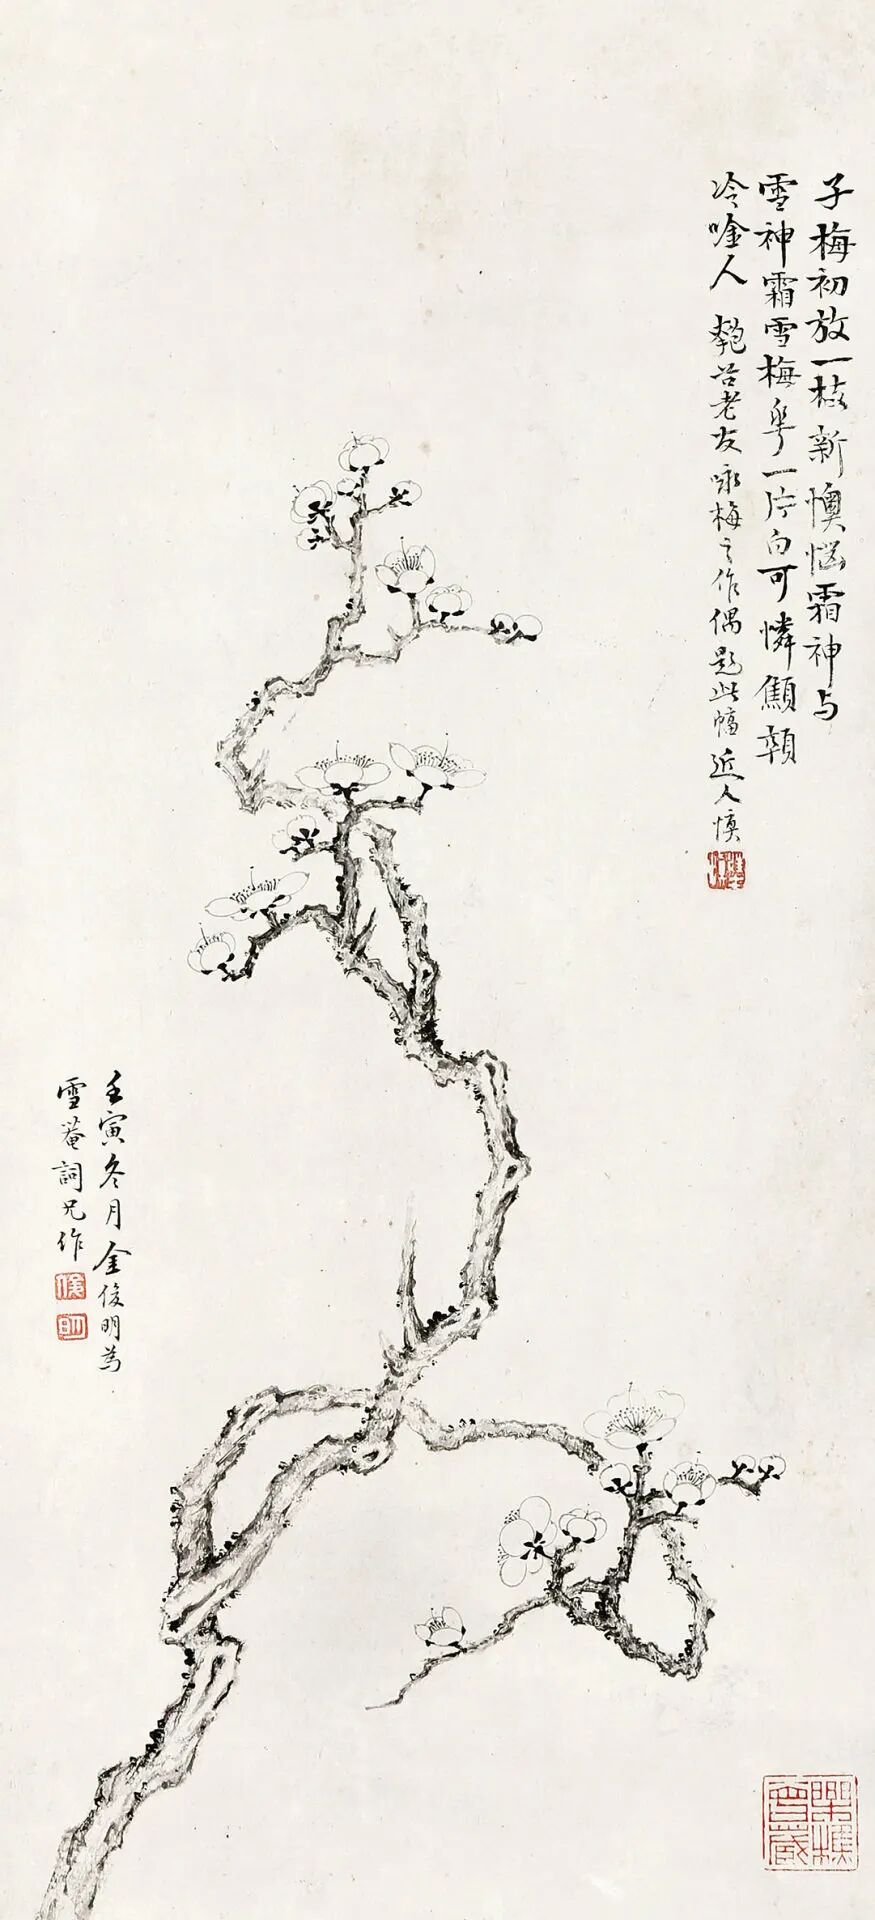 子梅初放一枝新懊惱霜神与
雪神霜雪梅花一片白可憐顦顇
冷唫人 匏谷老友咏梅之作偶題此幅 近人慎
壬寅冬月金俊明為
雪菴詞兄作
俊
明
樂樵
曾藏